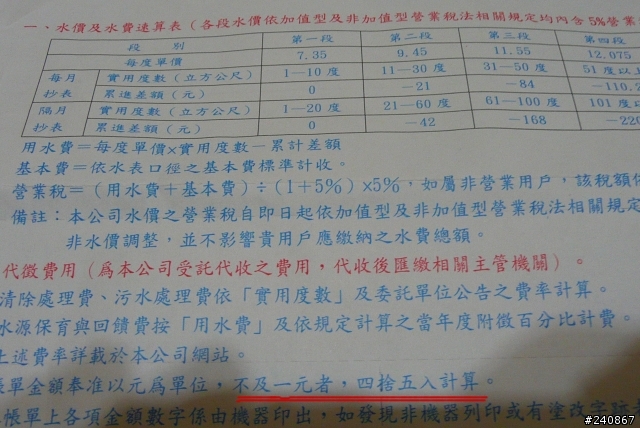 一、水價及水費速算表（各段水價依加值型及非加值型營業稅法相關規定均內含5%營業
段別 第一段 第二段 第三段 第四段
每度單價 7.35 9.45 11.55 12.075
每月抄表 實用度數（立方公尺） 1—10 度 11—30 度 31—50 度 51 度以
累進差額（元） 0 —21 —84 —110.2
隔月抄表 實用度數（立方公尺） 1—20 度 21—60 度 61—100 度 101 度以
累進差額（元） 0 —42 —168 —220
用水費＝每度單價×實用度數—累計差額
基本費＝依水表口徑之基本費標準計收。
營業稅＝（用水費＋基本費）÷（1＋5%）×5%，如屬非營業用戶，該稅額
備註：本公司水價之營業稅自即日起依加值型及非加值型營業稅法相關規定
非水價調整，並不影響貴用戶應繳納之水費總額。
代徵費用（為本公司受託代收之費用，代收後匯繳相關主管機關）。
清除處理費、污水處理費依「實用度數」及委託單位公告之費率計算。
水源保育與回饋費按「用水費」及依規定計算之當年度附徵百分比計費。
上述費率詳載於本公司網站。
帳單金額奉准以元為單位，不及一元者，四捨五入計算。
帳單上各項金額數字係由機器印出，如發現非機器列印或有塗改字跡
#240867